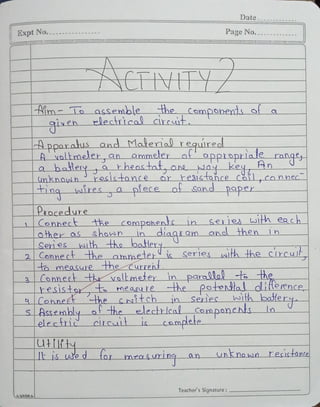 Date.............
Expt No.................
Page No.............
ACTIVITY 2
Aim - To assemble the components of a
given electrical circuit.
Apparatus and Material required
A voltmeter, an ammeter of appropriate range,
a battery, a rheostat, one way key, An
unknown resistance or resistance coil, connec-
ting wires, a piece of sand paper
Procedure
1 Connect the components in series with each
other as shown in diagram and then in
series with the battery.
2 Connect the ammeter is series with the circuit,
to measure the current
3 Connect the voltmeter in parallel to the
resistor, to measure the potential difference.
4 Connect the switch in series with battery.
5 Assembly of the electrical components in
electric circuit is complete.
Utility
It is used for measuring an unknown resistance
Teacher's Signature :